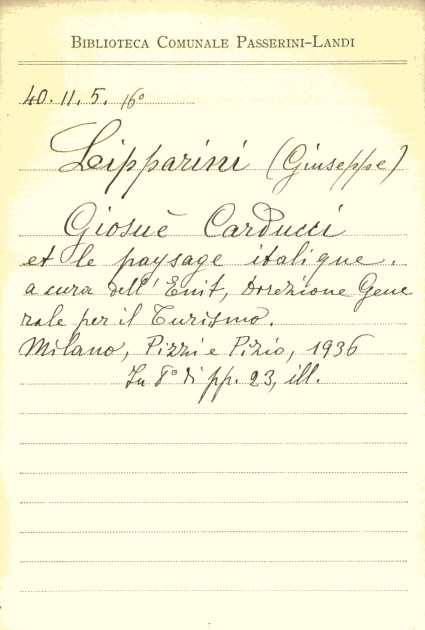 BIBLIOTECA COMUNALE PASSERINI-LANDI
40.11.5. 16°
Lipparini (Giuseppe)
Giosuè Carducci
et le paysage italique.
a cura dell'Enit, Direzione Gene
rale per il Turismo.
Milano, Pizzi e Pizio, 1936
In 8° di pp. 23, ill.